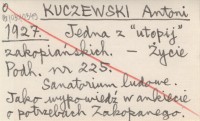 KUCZEWSKI Antoni
1927. Jedna z "utopij"
zakopiańskich. — Życie
Podh. nr 225.
Sanatorium ludowe.
Jako wypowiedź w ankiecie
o potrzebach Zakopanego.